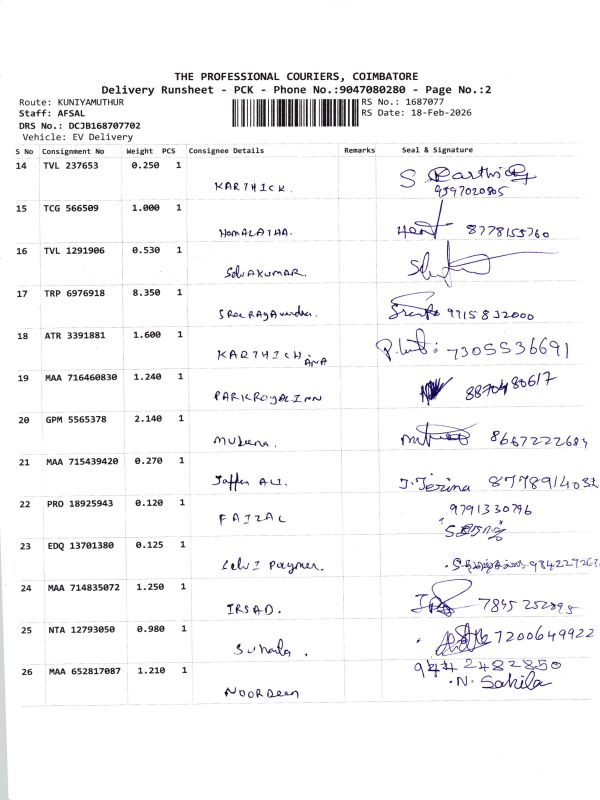 THE PROFESSIONAL COURIERS, COIMBATORE
Delivery Runsheet - PCK - Phone No.:9047080280 - Page No.:2
Route: KUNIYAMUTHUR
RS No.: 1687077
Staff: AFSAL
RS Date: 18-Feb-2026
DRS No.: DCJB168707702
Vehicle: EV Delivery
S No Consignment No Weight PCS Consignee Details Remarks Seal & Signature
14 TVL 237653 0.250 1
KARTHICK. S. Karthick
9597020805
15 TCG 566509 1.000 1
HOMALATHA. 8778155760
16 TVL 1291906 0.530 1
SelvAKUMAR.
17 TRP 6976918 8.350 1
SRee RAgAvendra. 9715832000
18 ATR 3391881 1.600 1
KARTHICH ANA 7305536691
19 MAA 716460830 1.240 1
PARKROYAL INN 8870480617
20 GPM 5565378 2.140 1
Mubeena. 8667222684
21 MAA 715439420 0.270 1
Jaffer ALI. J. Jerina 8778914032
22 PRO 18925943 0.120 1
FAIZAL 9791330796
23 EDQ 13701380 0.125 1
SelvI Paymer.
24 MAA 714835072 1.250 1
IRSAD. 7845252895
25 NTA 12793050 0.980 1
Suhaila. 7200649922
26 MAA 652817087 1.210 1
9442482850
NOORDeen N. Sakila